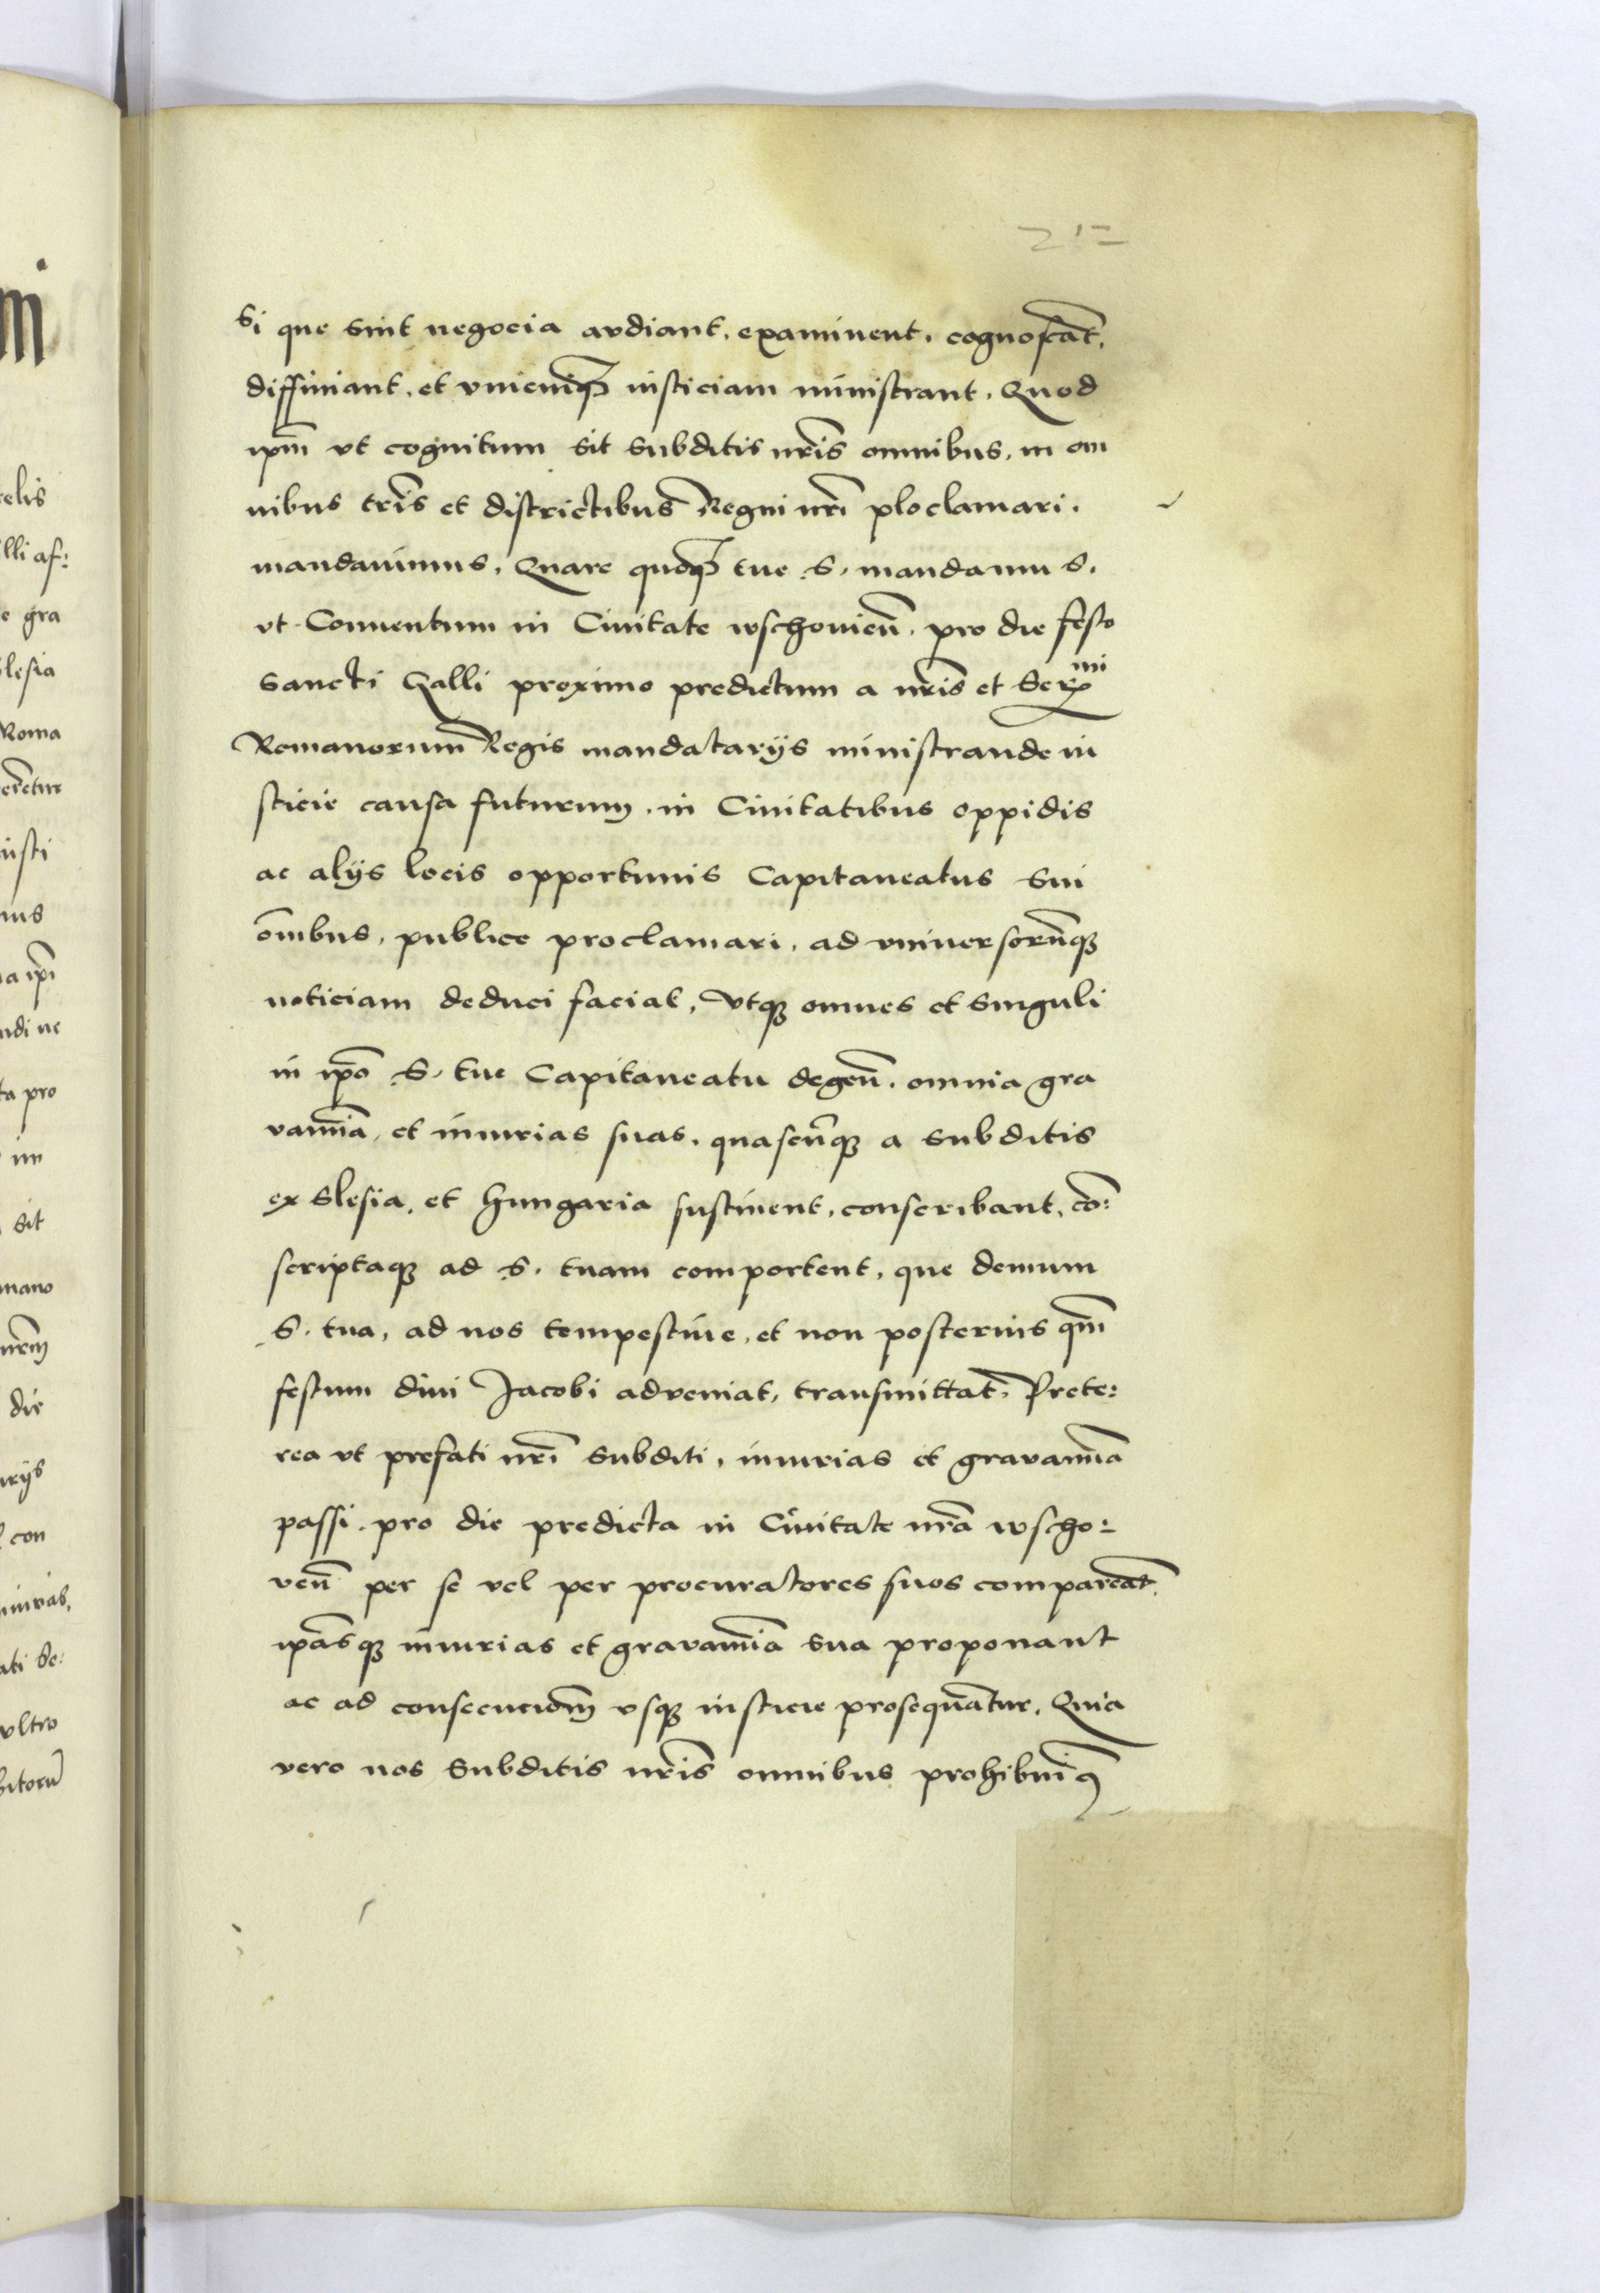 Si que sint negocia audiant, examinent, cognoscāt,
diffiniant, et vnicuiq̄ iusticiam ministrant. Quod
ipm̄ vt cognitum sit subditis nr̄is omnibus, in om
nibus tr̄is et districtibus Regni nr̄i ploclamari.
mandauimus. Quare quoq̄ tue S. mandamus S.
vt Conuentum in Ciuitate wschouien̄. pro die festo
Sancti Galli proximo predictum a nr̄is et Ser͞mi
Romanorum Regis mandatarijs ministrande iu
sticie causa futurum, in Ciuitatibus oppidis
ac alijs locis opportunis Capitaneatus sui
ōmbus, publice proclamari, ad vniuersorūq;
noticiam deduci faciat, Vtq; omnes et singuli
in ip̄o S. tue Capitaneatu degen̄. omnia gra
vamīa, et iniurias suas, quascūq; a subditis
ex Slesia, et Hungaria sustinent, conscribant, cō:
scriptaq; ad S. tuam comportent, que demum
S. tua, ad nos tempestiue, et non posterius qm̄
festum diui Jacobi adveniat, transmittat. Prete:
rea vt prefati nr̄i subditi, iniurias et gravamīa
passi, pro die predicta in Ciuitate nr̄a wscho:
ven̄ per se vel per procuratores suos compareāt,
ip̄asq; iniurias et gravamīa sua proponant
ac ad consecuciom̄ vsq; iusticie prosequātur. Quia
vero nos subditis nr̄is omnibus prohibuim⁹